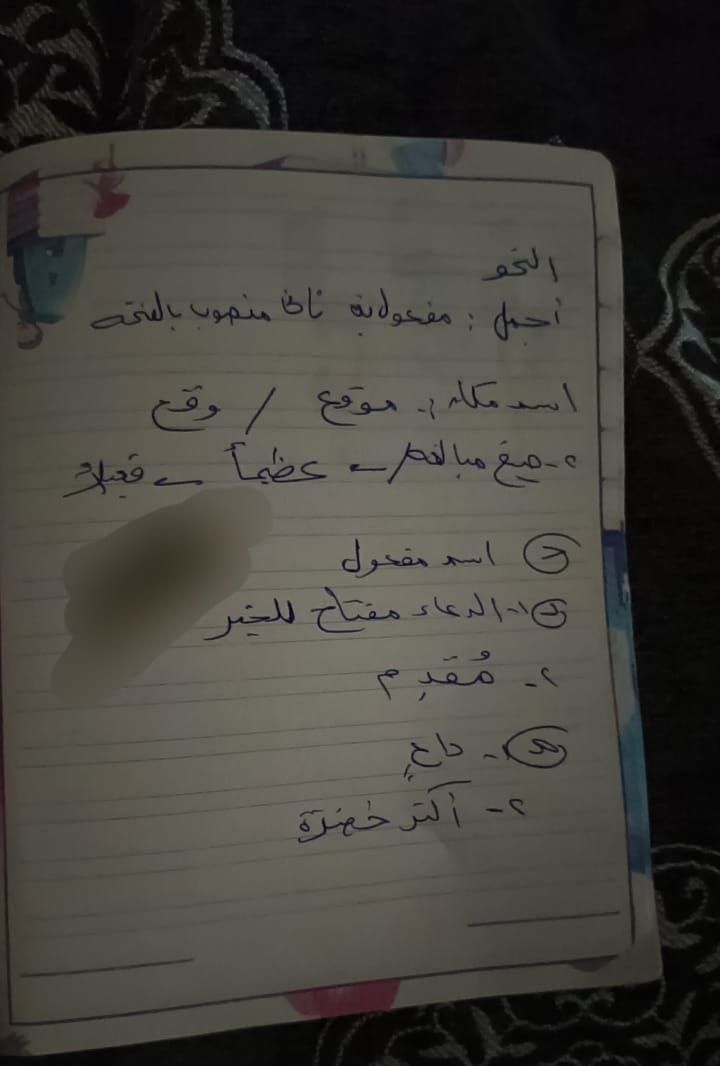 النحو
أجمل : مفعول به ثانى منصوب بالفتحه
اسم مكان : موقع / وقع
٢- صيغ مبالغه ← عظيماً ← فعيلاً
(ج) اسم مفعول
(د) ١- الدعاء مفتاح للخير
٢- مُقدِم
(هـ) ١- داعٍ
٢- أكثر خضرة